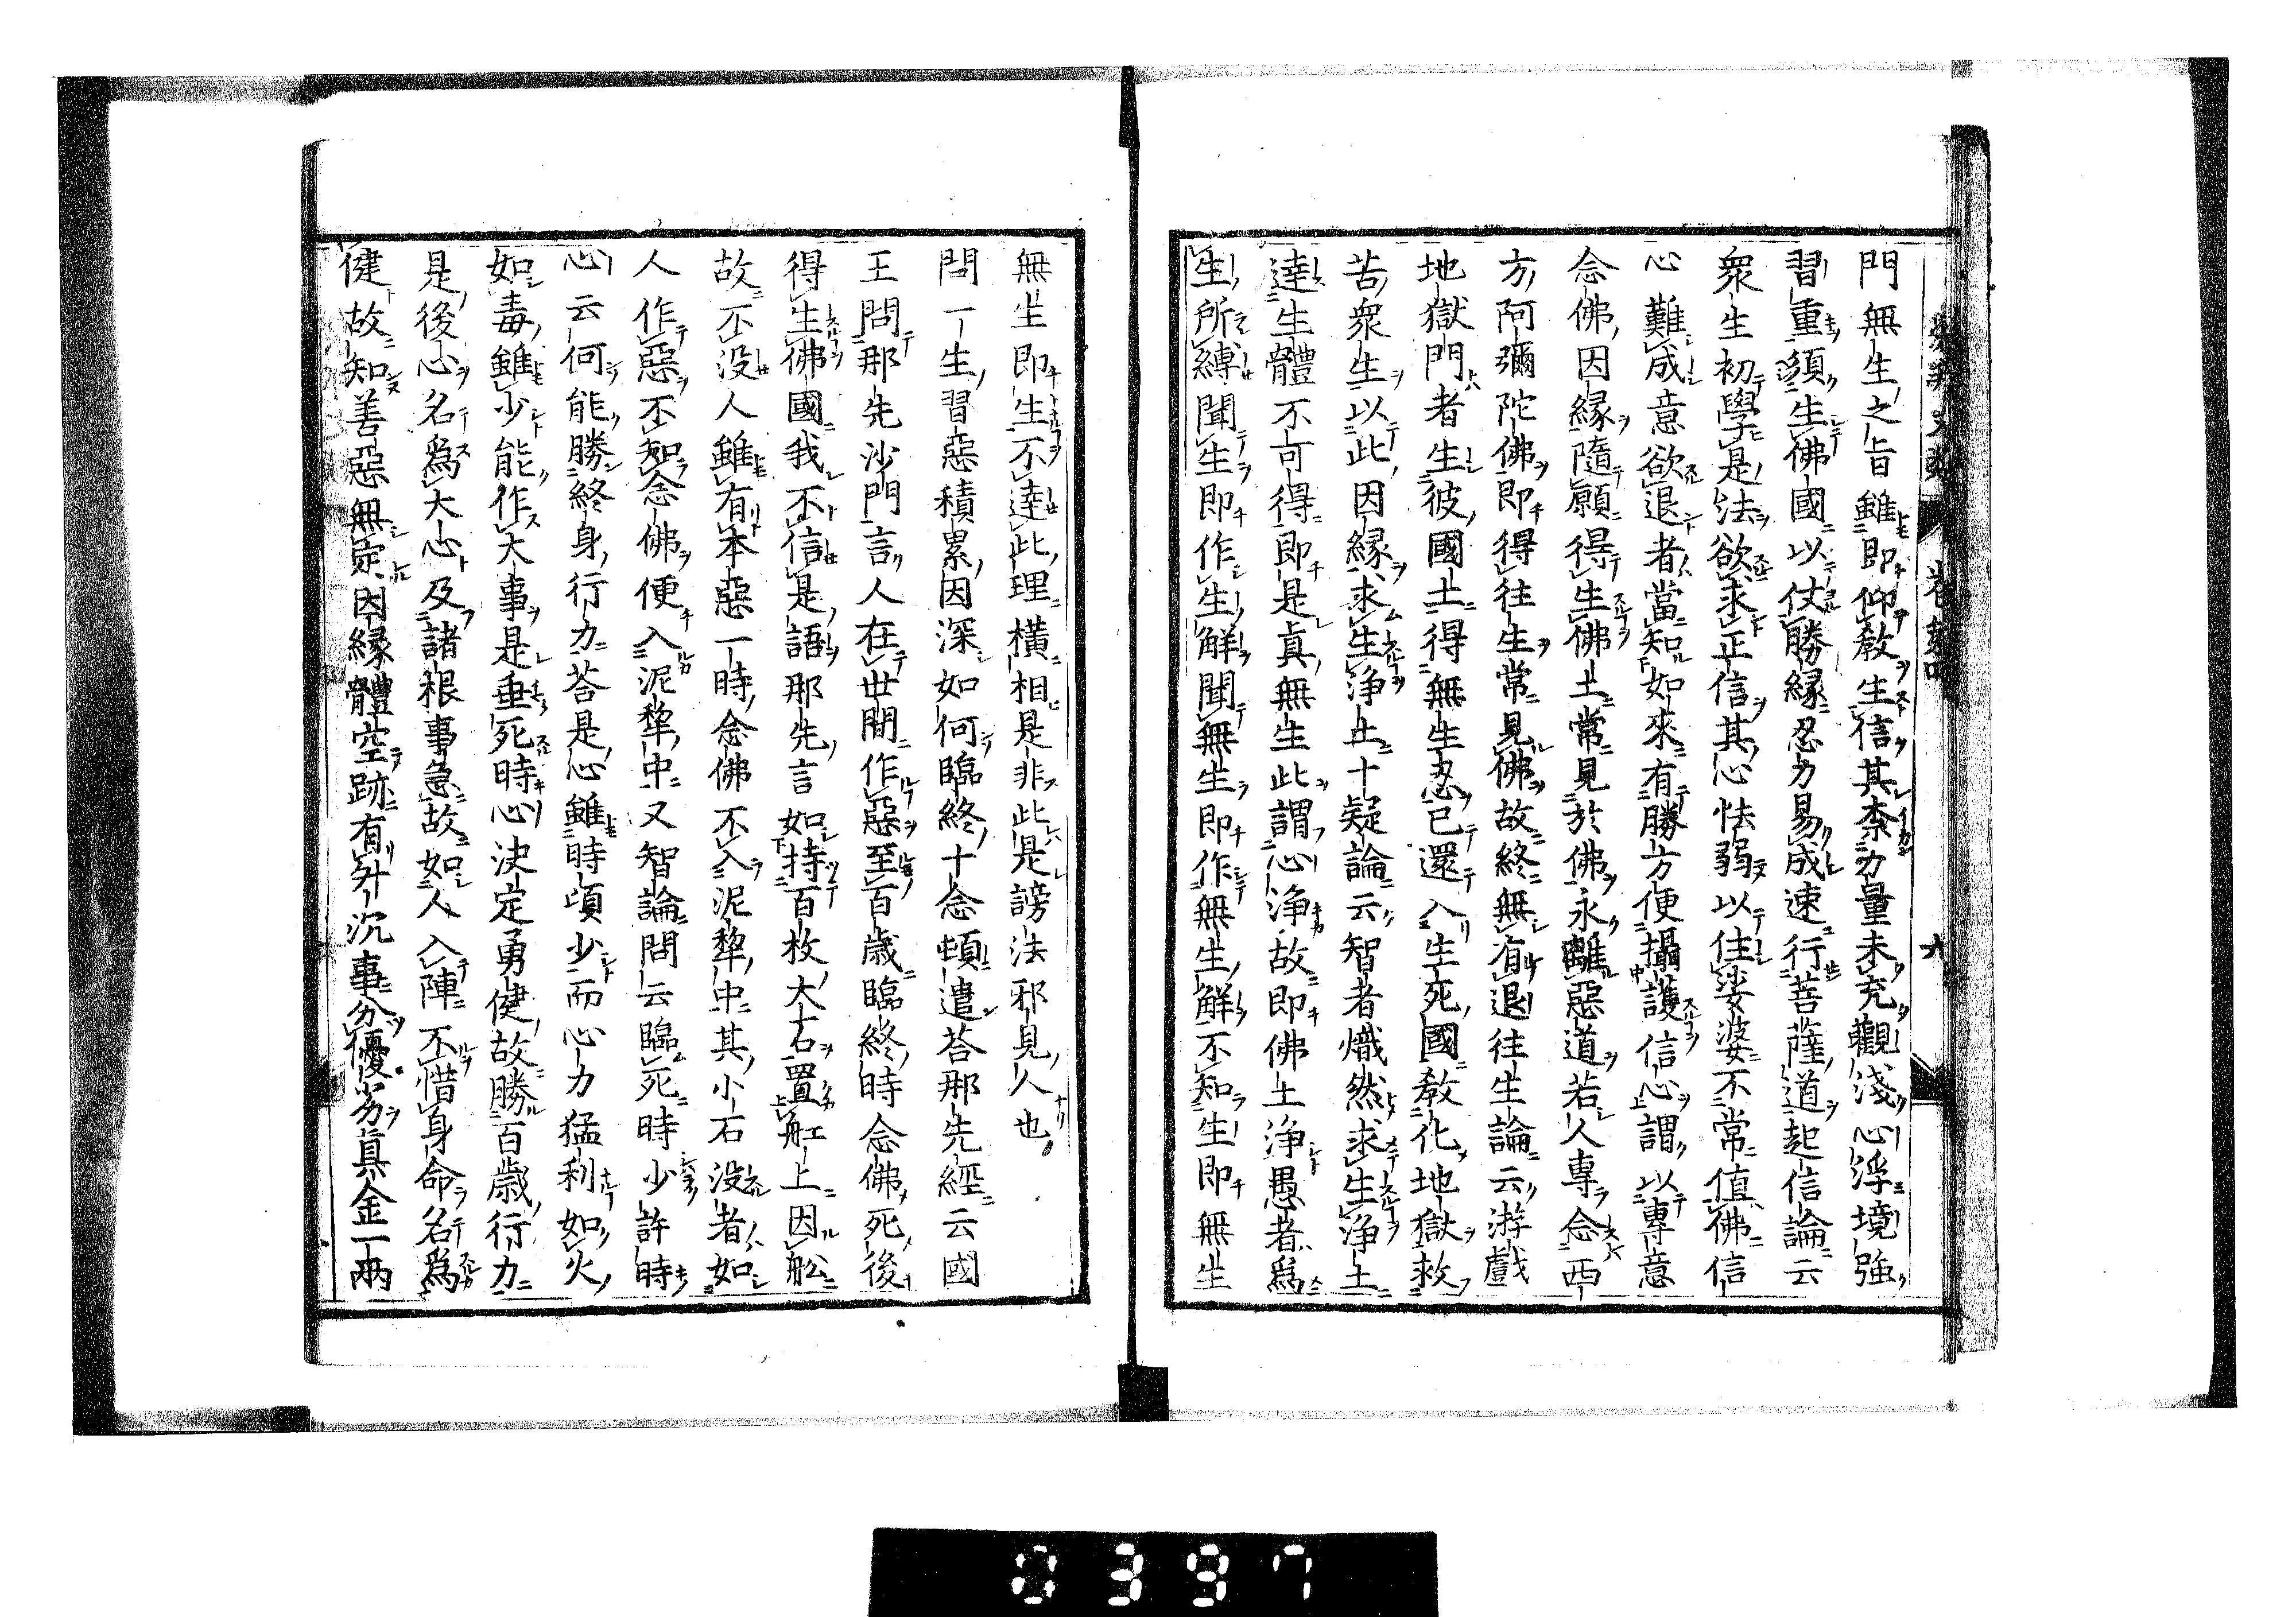 門無生之旨雖即仰教生信其柰力量未充觀淺心浮境強
習重須生佛國以仗勝縁忍力易成速行菩薩道起信論云
衆生初學是法欲求正信其心怯弱以住娑婆不常值佛信
心難成意欲退者當知如來有勝方便攝護信心謂以專意
念佛因縁隨願得生佛土常見於佛永離惡道若人專念西
方阿彌陀佛即得往生常見佛故終無有退往生論云游戲
地獄門者生彼國土得無生忍已還入生死國教化地獄救
苦衆生以此因縁求生淨土十疑論云智者熾然求生淨土
達生體不可得即是真無生此謂心淨故即佛土淨愚者爲
生所縛聞生即作生解聞無生即作無生解不知生即無生
無生即生不達此理橫相是非此是謗法邪見人也
問一生習惡積累因深如何臨終十念頓遣荅那先經云國
王問那先沙門言人在世間作惡至百歳臨終時念佛死後
得生佛國我不信是語那先言如持百枚大石置舡上因舩
故不没人雖有本惡一時念佛不入泥犂中其小石没者如
人作惡不知念佛便入泥犂中又智論問云臨死時少許時
心云何能勝終身行力荅是心雖時頃少而心力猛利如火
如毒雖少能作大事是垂死時心決定勇健故勝百歳行力
是後心名爲大心及諸根事急故如人入陣不惜身命名爲
健故知善惡無定因縁體空跡有升沉事分優劣真金一兩
0397